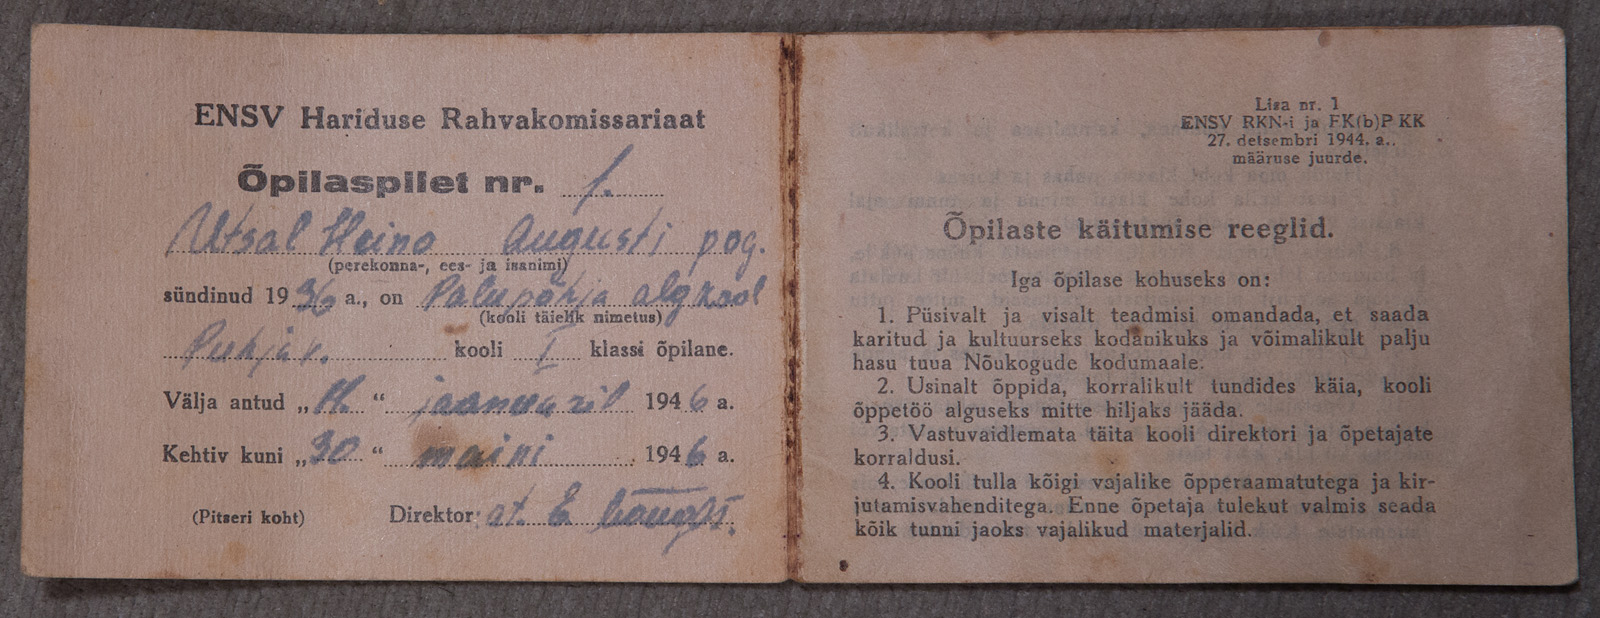 ENSV Hariduse Rahvakomissariaat
Õpilaspilet nr. 1.
Utsal Heino Augusti pog.
(perekonna-, ees- ja isanimi)
sündinud 1936 a., on Palupõhja algkool
(kooli täielik nimetus)
Puhja v. kooli I klassi õpilane.
Välja antud „11. “ jaanuaril 1946 a.
Kehtiv kuni „30 “ maini 1946 a.
(Pitseri koht) Direktor: E.
Lisa nr. 1
ENSV RKN-i ja FK(b)P KK
27. detsembri 1944. a..
määruse juurde.
Õpilaste käitumise reeglid.
Iga õpilase kohuseks on:
1. Püsivalt ja visalt teadmisi omandada, et saada
karitud ja kultuurseks kodanikuks ja võimalikult palju
hasu tuua Nõukogude kodumaale.
2. Usinalt õppida, korralikult tundides käia, kooli
õppetöö alguseks mitte hiljaks jääda.
3. Vastuvaidlemata täita kooli direktori ja õpetajate
korraldusi.
4. Kooli tulla kõigi vajalike õpperaamatutega ja kir-
jutamisvahenditega. Enne õpetaja tulekut valmis seada
kõik tunni jaoks vajalikud materjalid.